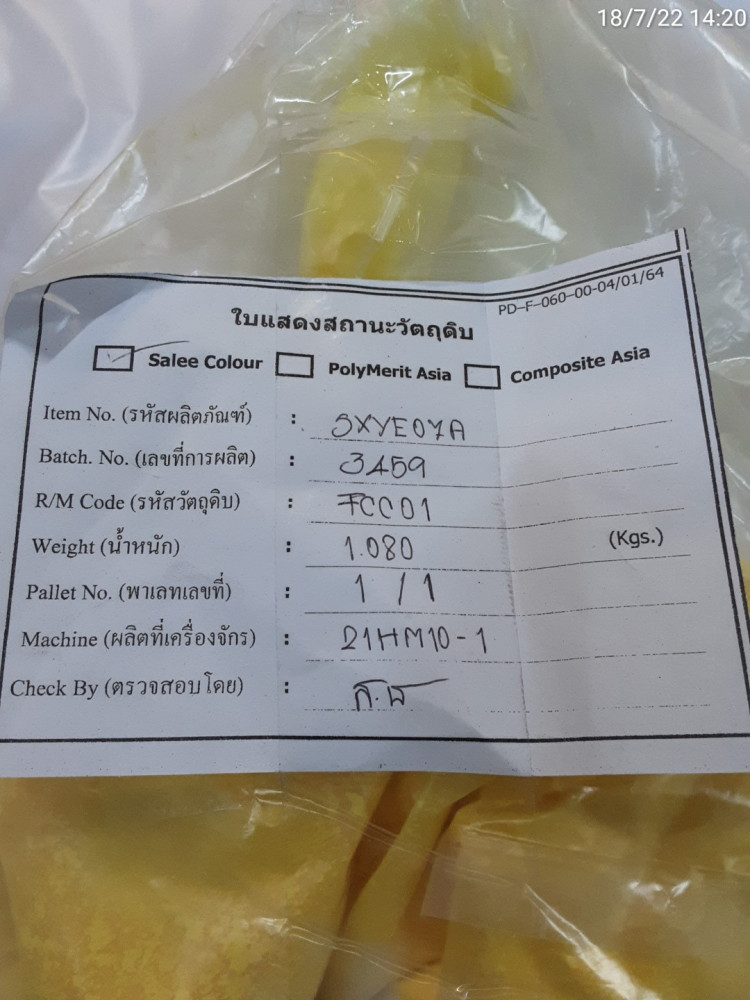 18/7/22 14:20
PD-F-060-00-04/01/64
ใบแสดงสถานะวัตถุดิบ
Salee Colour PolyMerit Asia Composite Asia
Item No. (รหัสผลิตภัณฑ์) : SXYE07A
Batch. No. (เลขที่การผลิต) : 3459
R/M Code (รหัสวัตถุดิบ) : FCC01
Weight (น้ำหนัก) : 1.080 (Kgs.)
Pallet No. (พาเลทเลขที่) : 1 / 1
Machine (ผลิตที่เครื่องจักร) : 21HM10-1
Check By (ตรวจสอบโดย) :